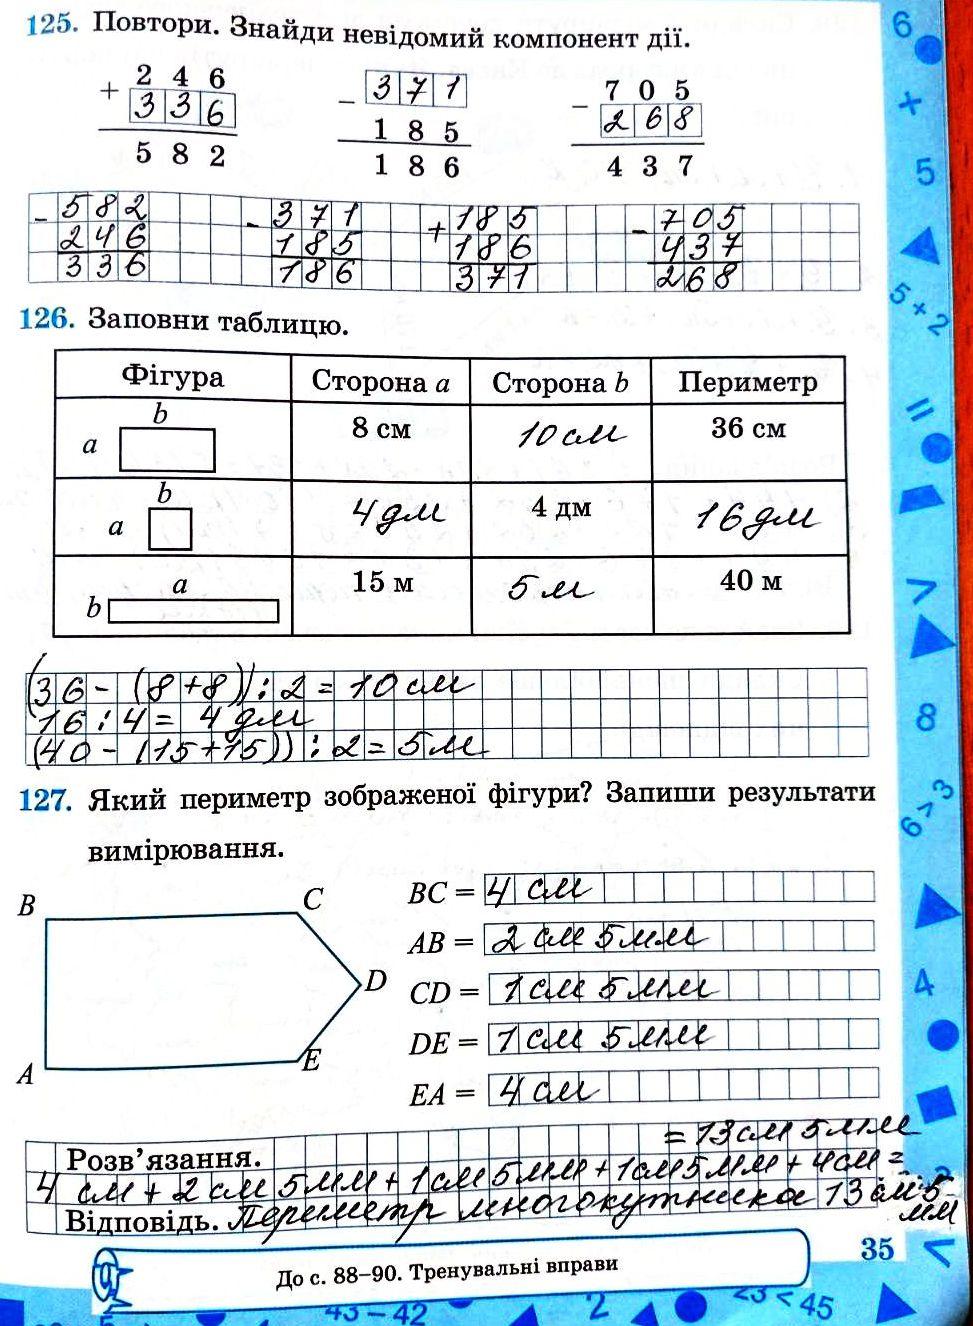 125. Повтори. Знайди невідомий компонент дії.
+ 2 4 6
3 3 6
5 8 2
- 3 7 1
1 8 5
1 8 6
- 7 0 5
2 6 8
4 3 7
- 5 8 2
2 4 6
3 3 6
- 3 7 1
1 8 5
1 8 6
+ 1 8 5
1 8 6
3 7 1
- 7 0 5
4 3 7
2 6 8
126. Заповни таблицю.
Фігура Сторона a Сторона b Периметр
b
a 8 см 10 см 36 см
b
a 4 дм 4 дм 16 дм
a
b 15 м 5 м 40 м
(36 - (8+8)) : 2 = 10 см
16 : 4 = 4 дм
(40 - (15+15)) : 2 = 5 м
127. Який периметр зображеної фігури? Запиши результати
вимірювання.
B C D E A
BC = 4 см
AB = 2 см 5 мм
CD = 1 см 5 мм
DE = 1 см 5 мм
EA = 4 см
= 13 см 5 мм
Розв’язання.
4 см + 2 см 5 мм + 1 см 5 мм + 1 см 5 мм + 4 см =
Відповідь. Периметр многокутника 13 см 5
мм
35
До с. 88–90. Тренувальні вправи
6
+
5
5 + 2
=
>
8
6 > 3
4
<
43 – 42
2
< 45